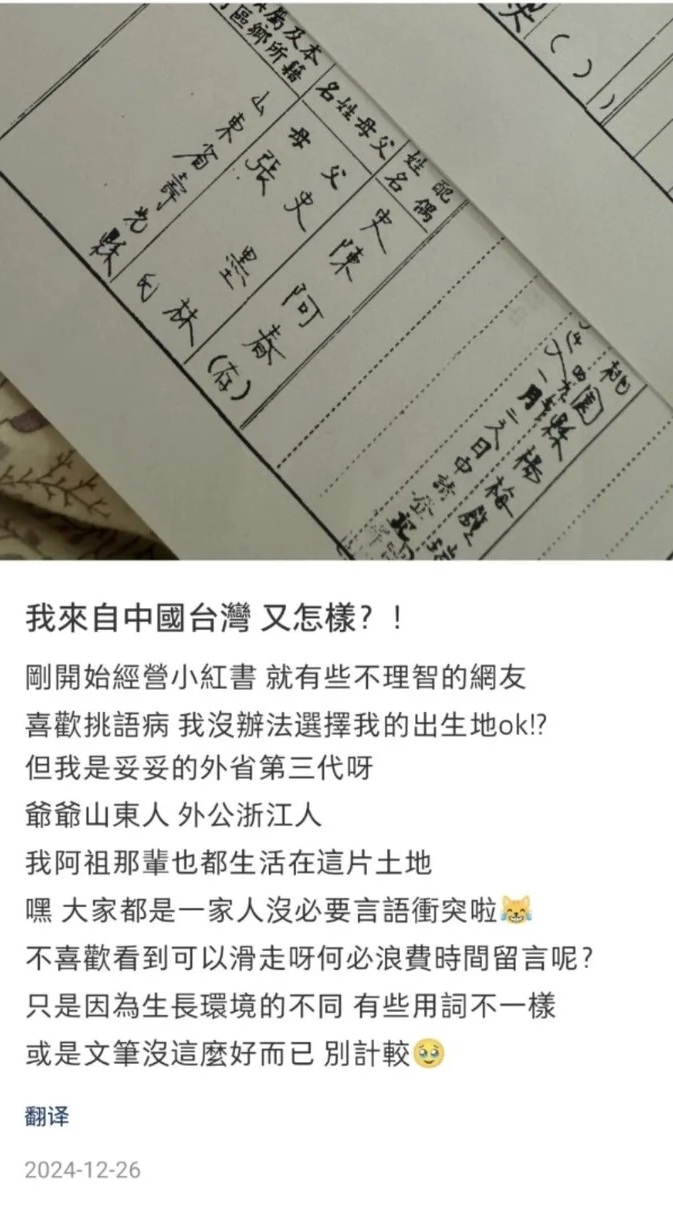 桃園縣楊梅
月二六日申請登記
配偶
姓名
史陳阿春(存)
父母姓名
父史墨林
母張氏
山東省壽光縣
我來自中國台灣 又怎樣？！
剛開始經營小紅書 就有些不理智的網友
喜歡挑語病 我沒辦法選擇我的出生地ok!?
但我是妥妥的外省第三代呀
爺爺山東人 外公浙江人
我阿祖那輩也都生活在這片土地
嘿 大家都是一家人沒必要言語衝突啦😹
不喜歡看到可以滑走呀何必浪費時間留言呢?
只是因為生長環境的不同 有些用詞不一樣
或是文筆沒這麼好而已 別計較🥹
翻译
2024-12-26